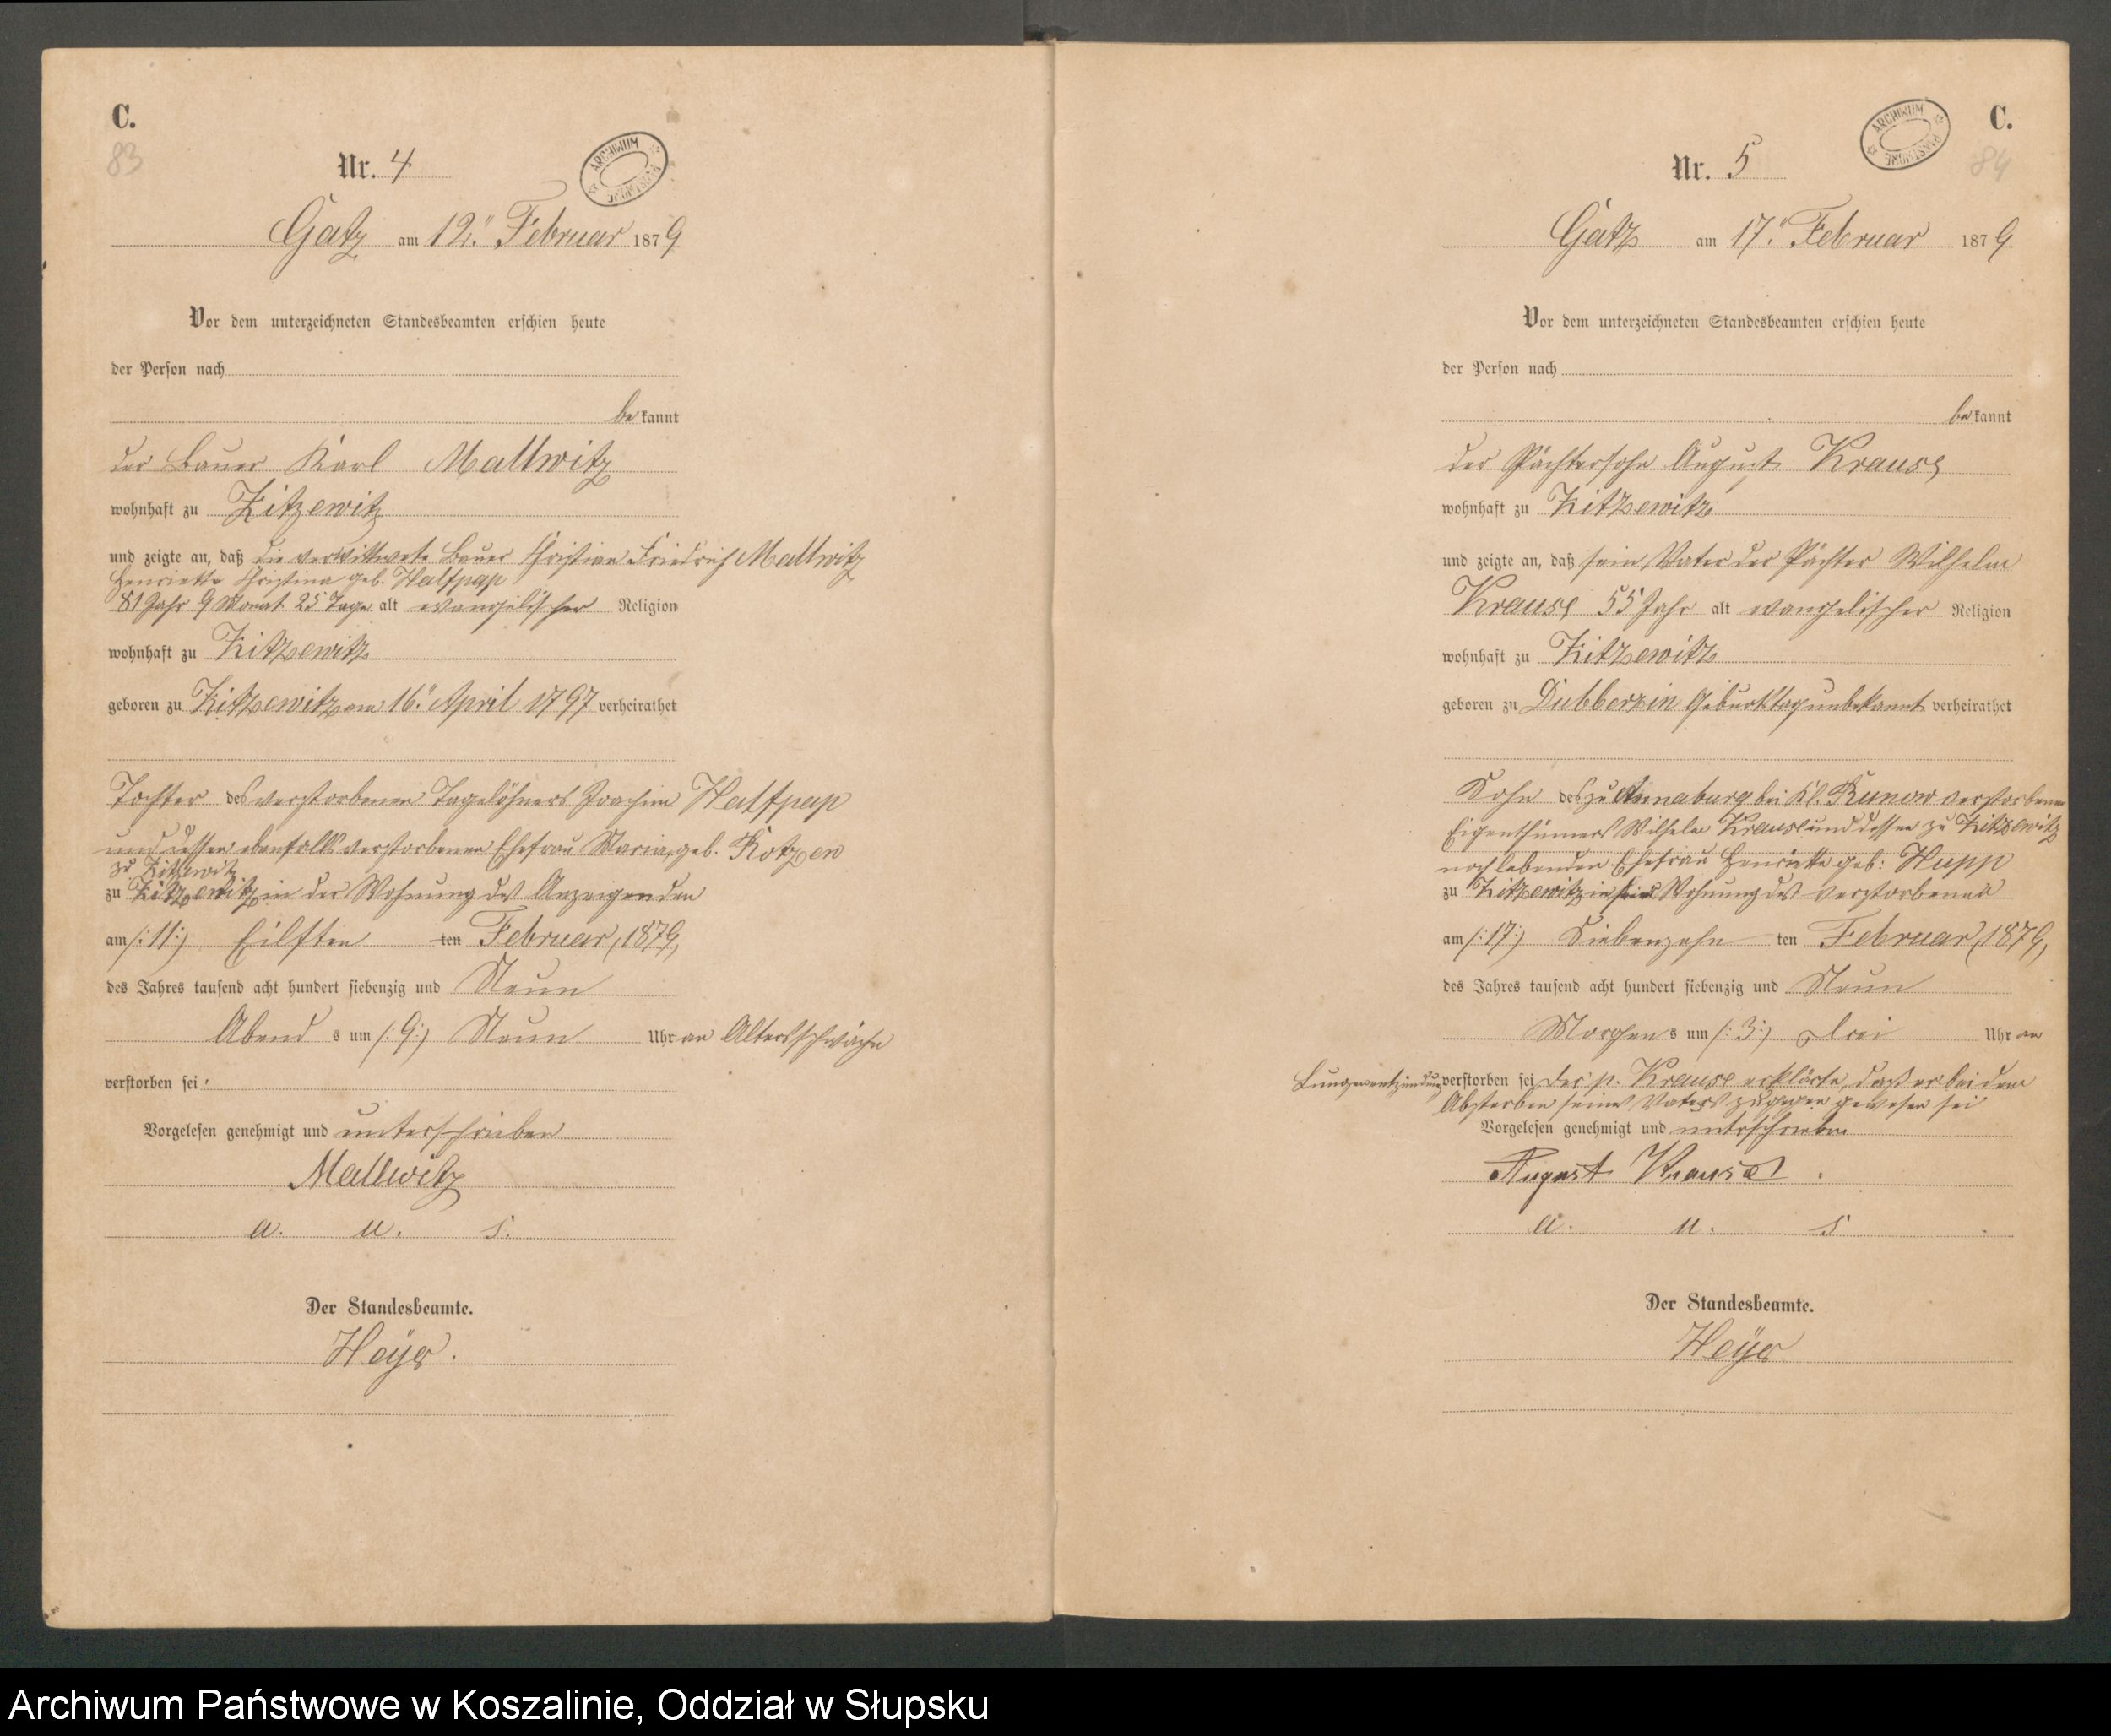 C.
83
Nr. 4
ARCHIWUM PAŃSTWOWE
Gatz am 12." Februar 1879
Vor dem unterzeichneten Standesbeamten erschien heute
der Person nach
bekannt
der Bauer Karl Mallwitz
wohnhaft zu Zitzewitz
und zeigte an, daß die verwittwete Bauer Christian Friedrich Mallwitz
Henriette Christina geb. Halfpap
81 Jahr 9 Monat 25 Tage alt evangelischer Religion
wohnhaft zu Zitzewitz
geboren zu Zitzewitz am 16." April 1797 verheirathet
Tochter des verstorbenen Tagelöhners Joachim Halfpap
und dessen ebenfalls verstorbenen Ehefrau Maria, geb. Kotzen
zu Zitzewitz
zu Zitzewitz in der Wohnung des Anzeigenden
am /:11:/ Eilften ten Februar, 1879,
des Jahres tausend acht hundert siebenzig und Neun
Abend s um /:9:/ Neun Uhr an Altersschwäche
verstorben sei.
Vorgelesen genehmigt und unterschrieben
Mallwitz
a. u. s.
Der Standesbeamte.
Heyer.
C.
84
Nr. 5
ARCHIWUM PAŃSTWOWE
Gatz am 17." Februar 1879
Vor dem unterzeichneten Standesbeamten erschien heute
der Person nach
bekannt
der Pächtersohn August Krause
wohnhaft zu Zitzewitz
und zeigte an, daß sein Vater der Pächter Wilhelm
Krause 55 Jahr alt evangelischer Religion
wohnhaft zu Zitzewitz
geboren zu Dubberzin Geburtstag unbekannt verheirathet
Sohn des zu Annaburg bei Kl. Runow verstorbenen
Eigenthümers Wilhelm Krause und dessen zu Zitzewitz
noch lebenden Ehefrau Henriette geb: Hupp
zu Zitzewitz in Wohnung des verstorbenen
am /:17:/ Siebenzehn ten Februar, 1879,
des Jahres tausend acht hundert siebenzig und Neun
Morgen s um /:3:/ Drei Uhr an
Lungenentzündung verstorben sei Der p. Krause erklärte, daß er bei dem
Absterben seines Vaters zugegen gewesen sei
Vorgelesen genehmigt und unterschrieben
August Krause
a. u. s
Der Standesbeamte.
Heyer
Archiwum Państwowe w Koszalinie, Oddział w Słupsku